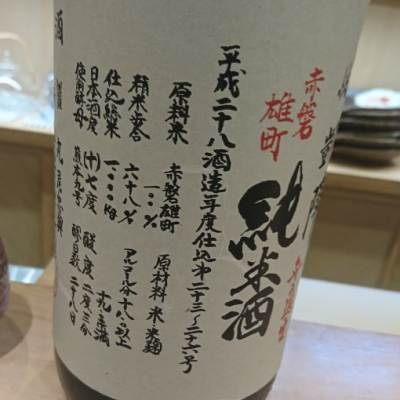 赤磐
雄町
純米酒
平成二十八酒造年度仕込第二十三〜二十六号
原料米 赤磐雄町
一〇〇%
原材料 米 米麹
精米歩合 六十八%
アルコール分十八度以上
十九度未満
仕込総米 一〇〇〇kg
日本酒度 (十)七度
酸度 二度三分
使用酵母 熊本九号
醪日数 二十八日
酒